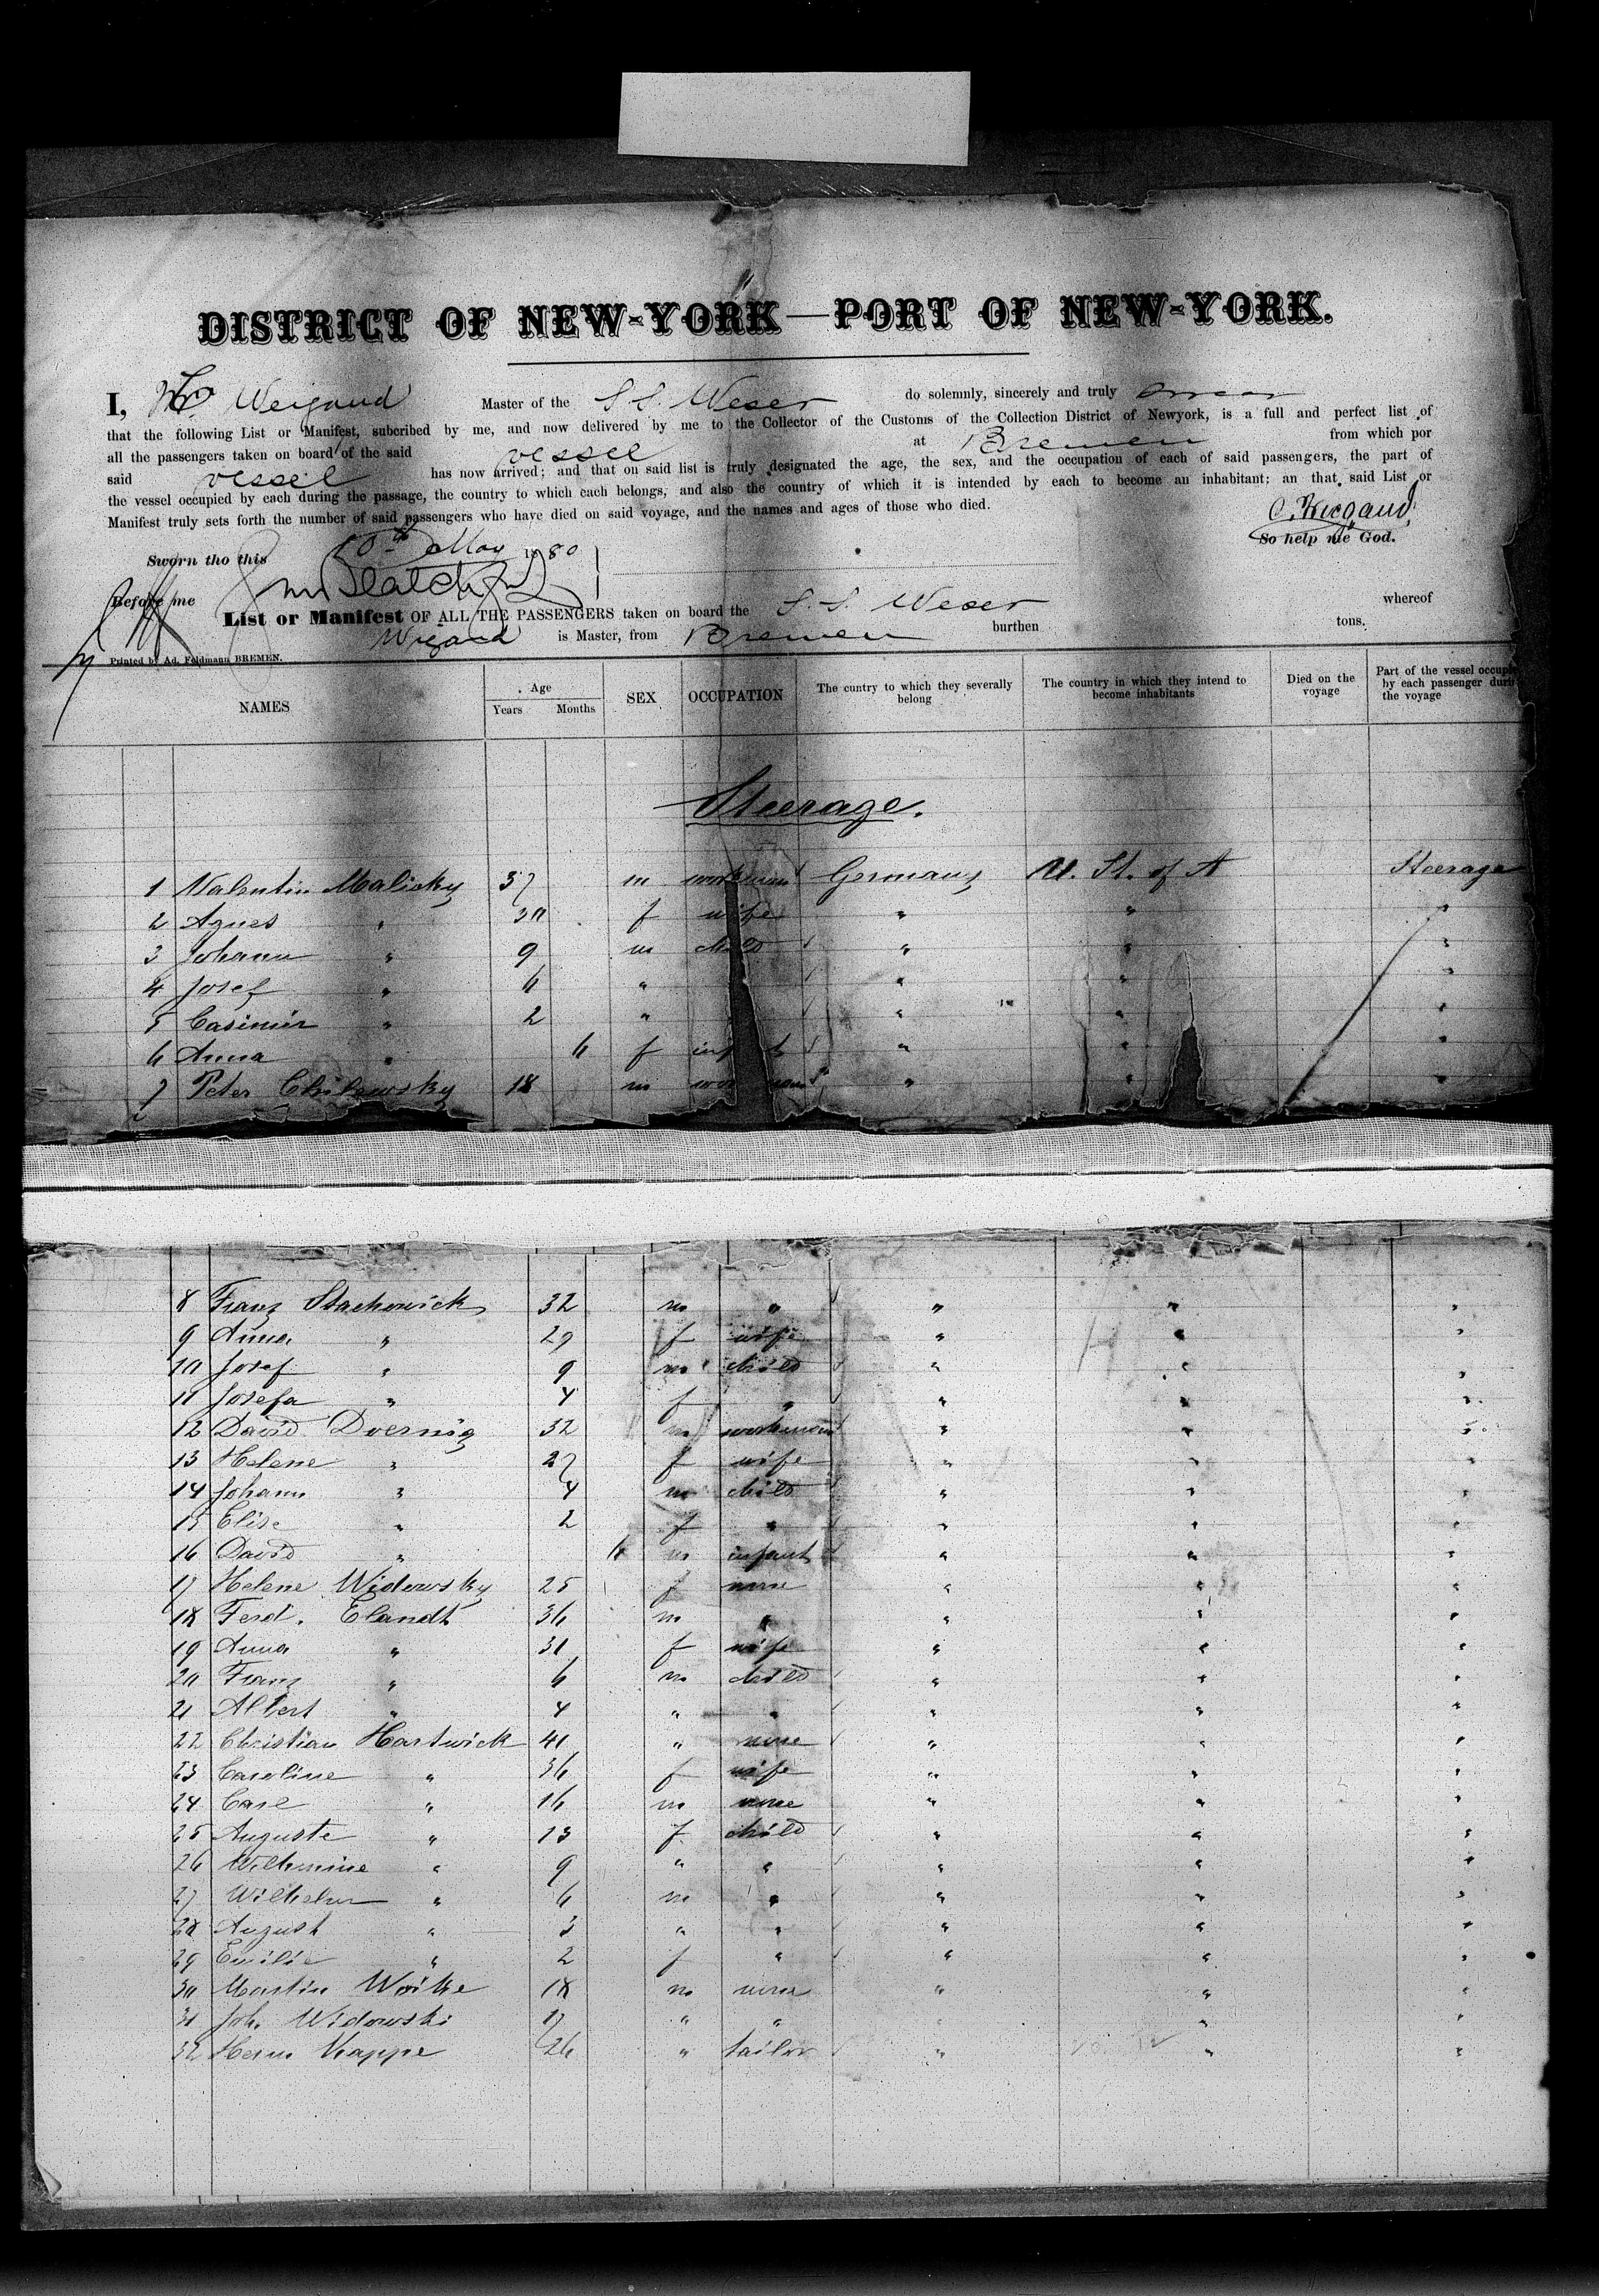 DISTRICT OF NEW-YORK—PORT OF NEW-YORK.
I, Weigand Master of the S S. Weser do solemnly, sincerely and truly swear
that the following List or Manifest, subcribed by me, and now delivered by me to the Collector of the Customs of the Collection District of Newyork, is a full and perfect list of
all the passengers taken on board of the said vessel at Bremen from which por
said vessel has now arrived; and that on said list is truly designated the age, the sex, and the occupation of each of said passengers, the part of
the vessel occupied by each during the passage, the country to which each belongs, and also the country of which it is intended by each to become an inhabitant; an that said List or
Manifest truly sets forth the number of said passengers who have died on said voyage, and the names and ages of those who died.
So help me God.
Sworn tho this 10th May 1880
Before me
List or Manifest OF ALL THE PASSENGERS taken on board the S. S. Weser whereof
is Master, from Bremen burthen tons.
Printed by Ad. Feldmann BREMEN.
NAMES Age Years Months SEX OCCUPATION The cuntry to which they severally belong The country in which they intend to become inhabitants Died on the voyage Part of the vessel occupie by each passenger durin the voyage
Steerage.
1 Valentin Malicky 37 m workman Germany U. St. of A Steerage
2 Agnes " 30 f wife " " "
3 Johann " 9 m child " " "
4 Josef " 6 " " " "
5 Casimir " 2 " " " "
6 Anna " 6 f infant " " "
7 Peter Chilewsky 18 m workman " " "
8 Franz Stachowick 32 m " " " "
9 Anna " 29 f wife " " "
10 Josef " 9 m child " " "
11 Josefa " 4 f " " " "
12 David Doernig 32 m workman " " "
13 Helene " 27 f wife " " "
14 Johann " 4 m child " " "
15 Elise " 2 f " " " "
16 David " 6 m infant " " "
17 Helene Widowsky 25 f none " " "
18 Ferd. Elandt 36 m " " " "
19 Anna " 31 f wife " " "
20 Franz " 6 m child " " "
21 Albert " 4 " " " " "
22 Christian Hartwick 41 " none " " "
23 Caroline " 36 f wife " " "
24 Carl " 16 m none " " "
25 Auguste " 13 f child " " "
26 Wilhemine " 9 " " " " "
27 Wilhelm " 6 m " " " "
28 August " 3 " " " " "
29 Emilie " 2 f " " " "
30 Martin Woike 18 m none " " "
31 Joh. Widowski 17 " " " " "
32 Herm Kappe 26 " tailor " " "